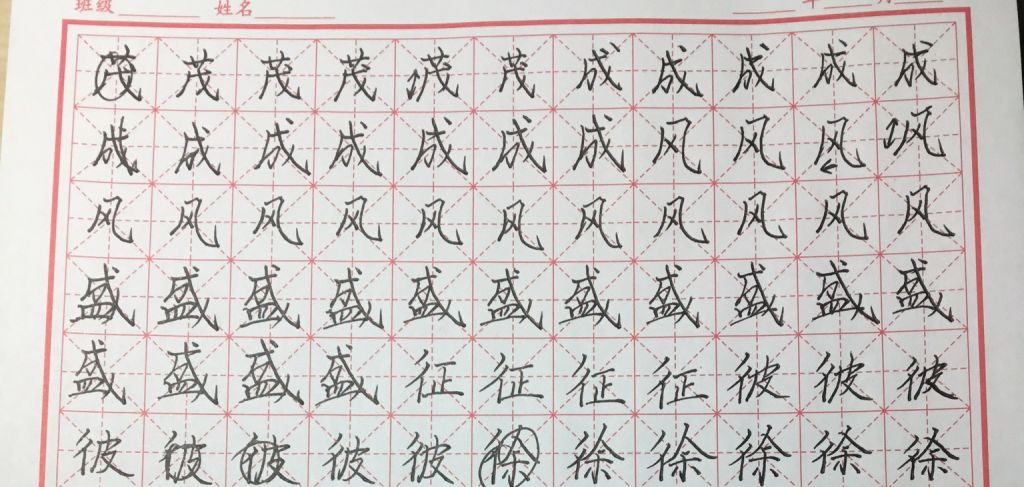 班级 姓名 年 月
茂茂茂茂茂茂成成成成成
成成成成成成成风风风风
风风风风风风风风风风风
盛盛盛盛盛盛盛盛盛盛盛
盛盛盛盛征征征征彼彼彼
彼彼彼彼彼徐徐徐徐徐徐